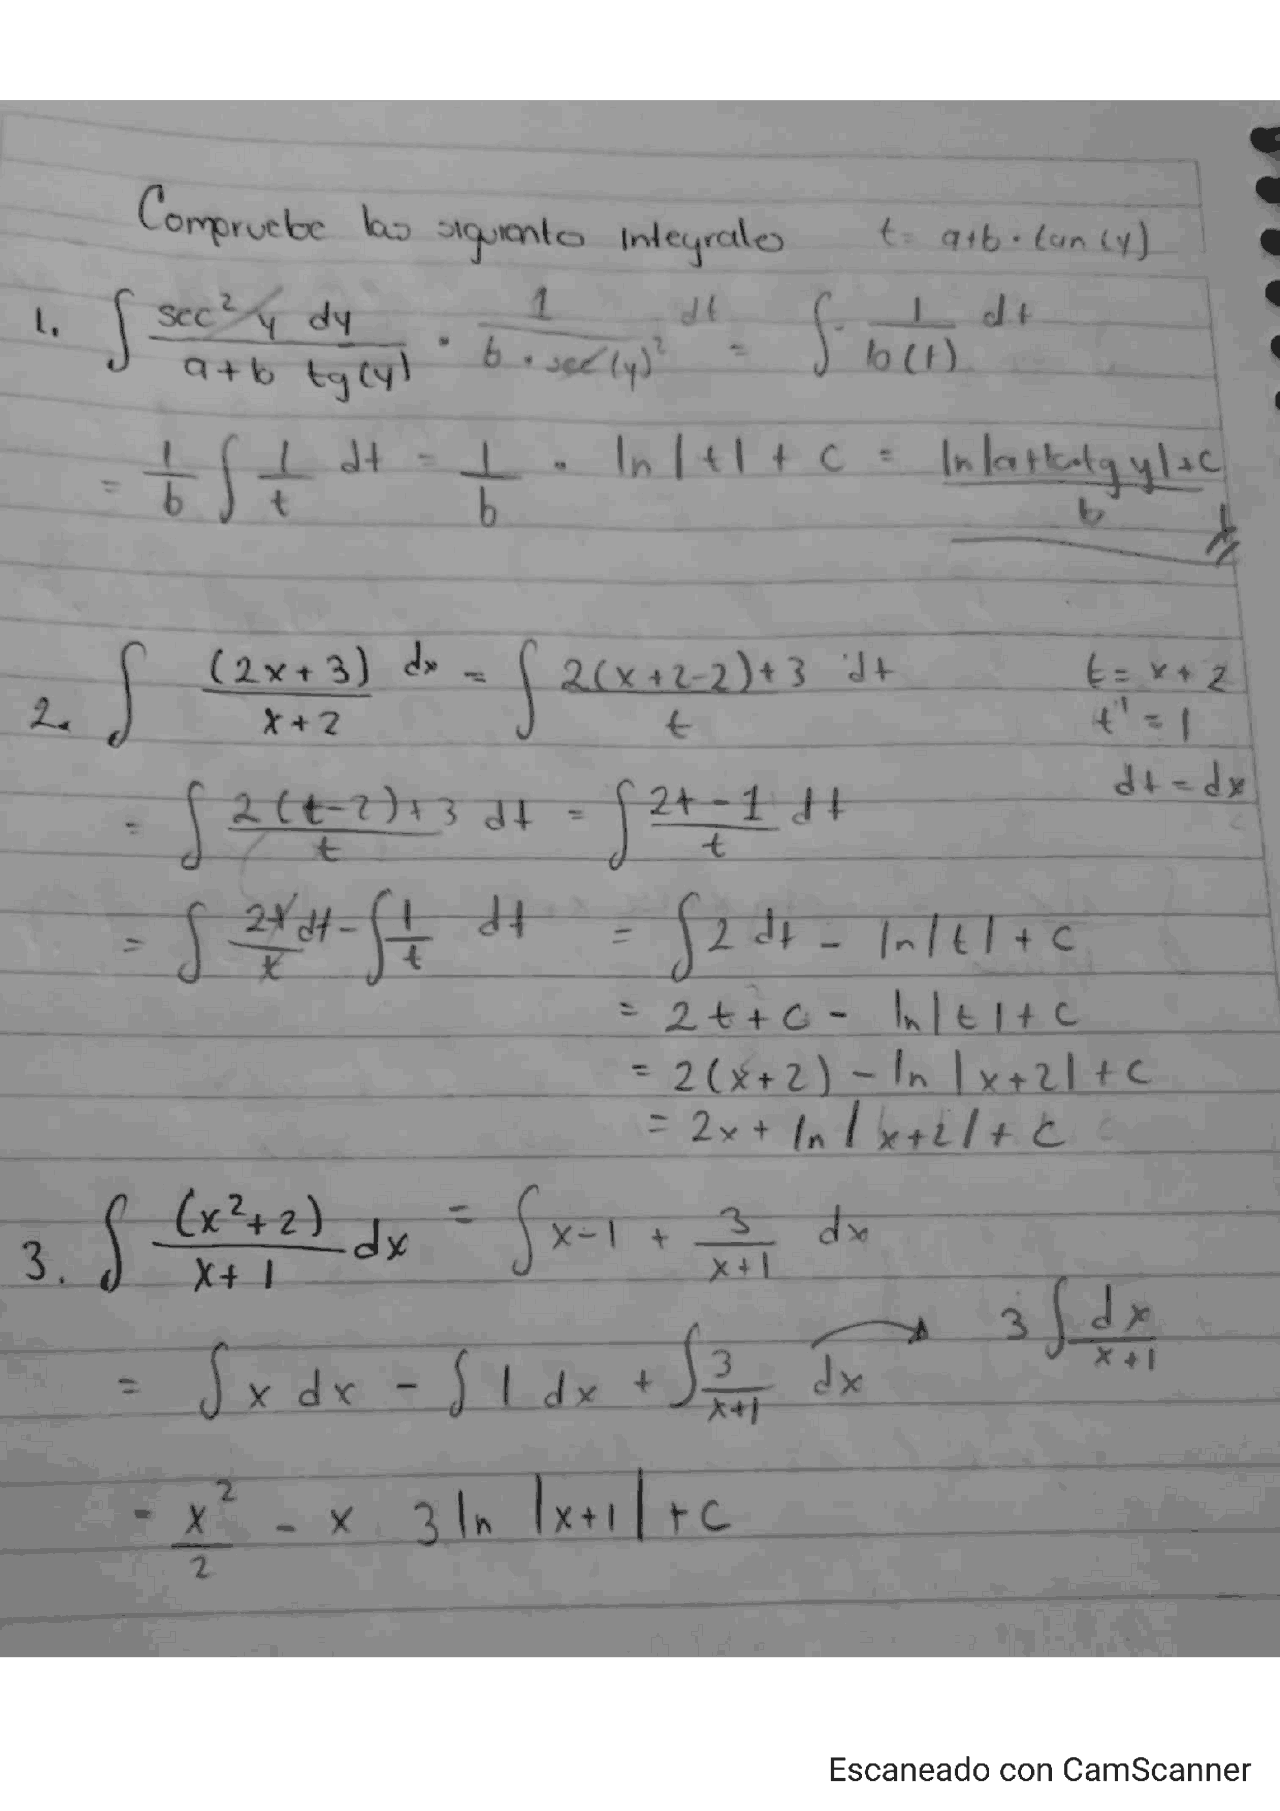 Compruebe las siguientes integrales t = a+b · tan (y)
1. ∫ sec² y dy / a + b tg(y) · 1 / b · sec(y)² dt = ∫ 1 / b(t) dt
= 1/b ∫ 1/t dt = 1/b · ln |t| + c = ln |a+b·tg y| + c / b
2. ∫ (2x+3) / x+2 dx = ∫ 2(x+2-2)+3 / t dt t = x+2
t' = 1
dt = dx
= ∫ 2(t-2)+3 / t dt = ∫ 2t-1 / t dt
= ∫ 2t/t dt - ∫ 1/t dt = ∫ 2 dt - ln|t| + c
= 2t + c - ln|t| + c
= 2(x+2) - ln |x+2| + c
= 2x + ln |x+2| + c
3. ∫ (x²+2) / x+1 dx = ∫ x-1 + 3 / x+1 dx
= ∫ x dx - ∫ 1 dx + ∫ 3 / x+1 dx → 3 ∫ dx / x+1
= x²/2 - x 3 ln |x+1| + c
Escaneado con CamScanner